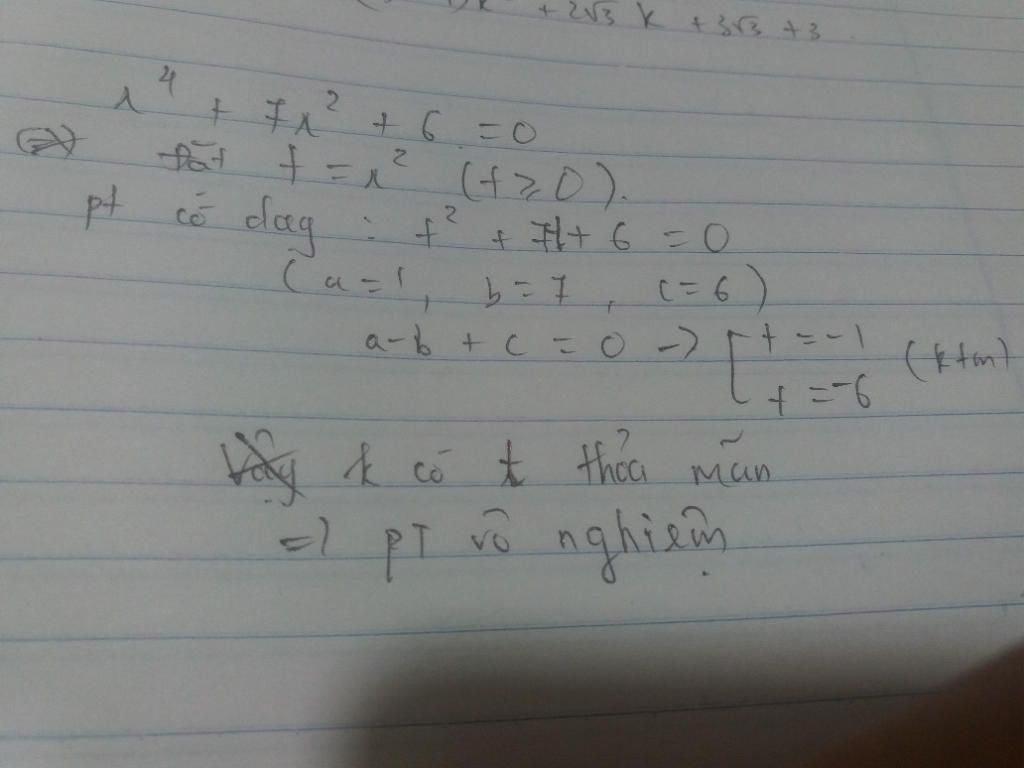 k + 2√3 k + 3√3 + 3
x⁴ + 7x² + 6 = 0
đặt t = x² (t ≥ 0).
pt có dag : t² + 7t + 6 = 0
(a = 1, b = 7, c = 6)
a - b + c = 0 → [ t = -1
t = -6 (ktm)
k có t thỏa mãn
=) PT vô nghiệm